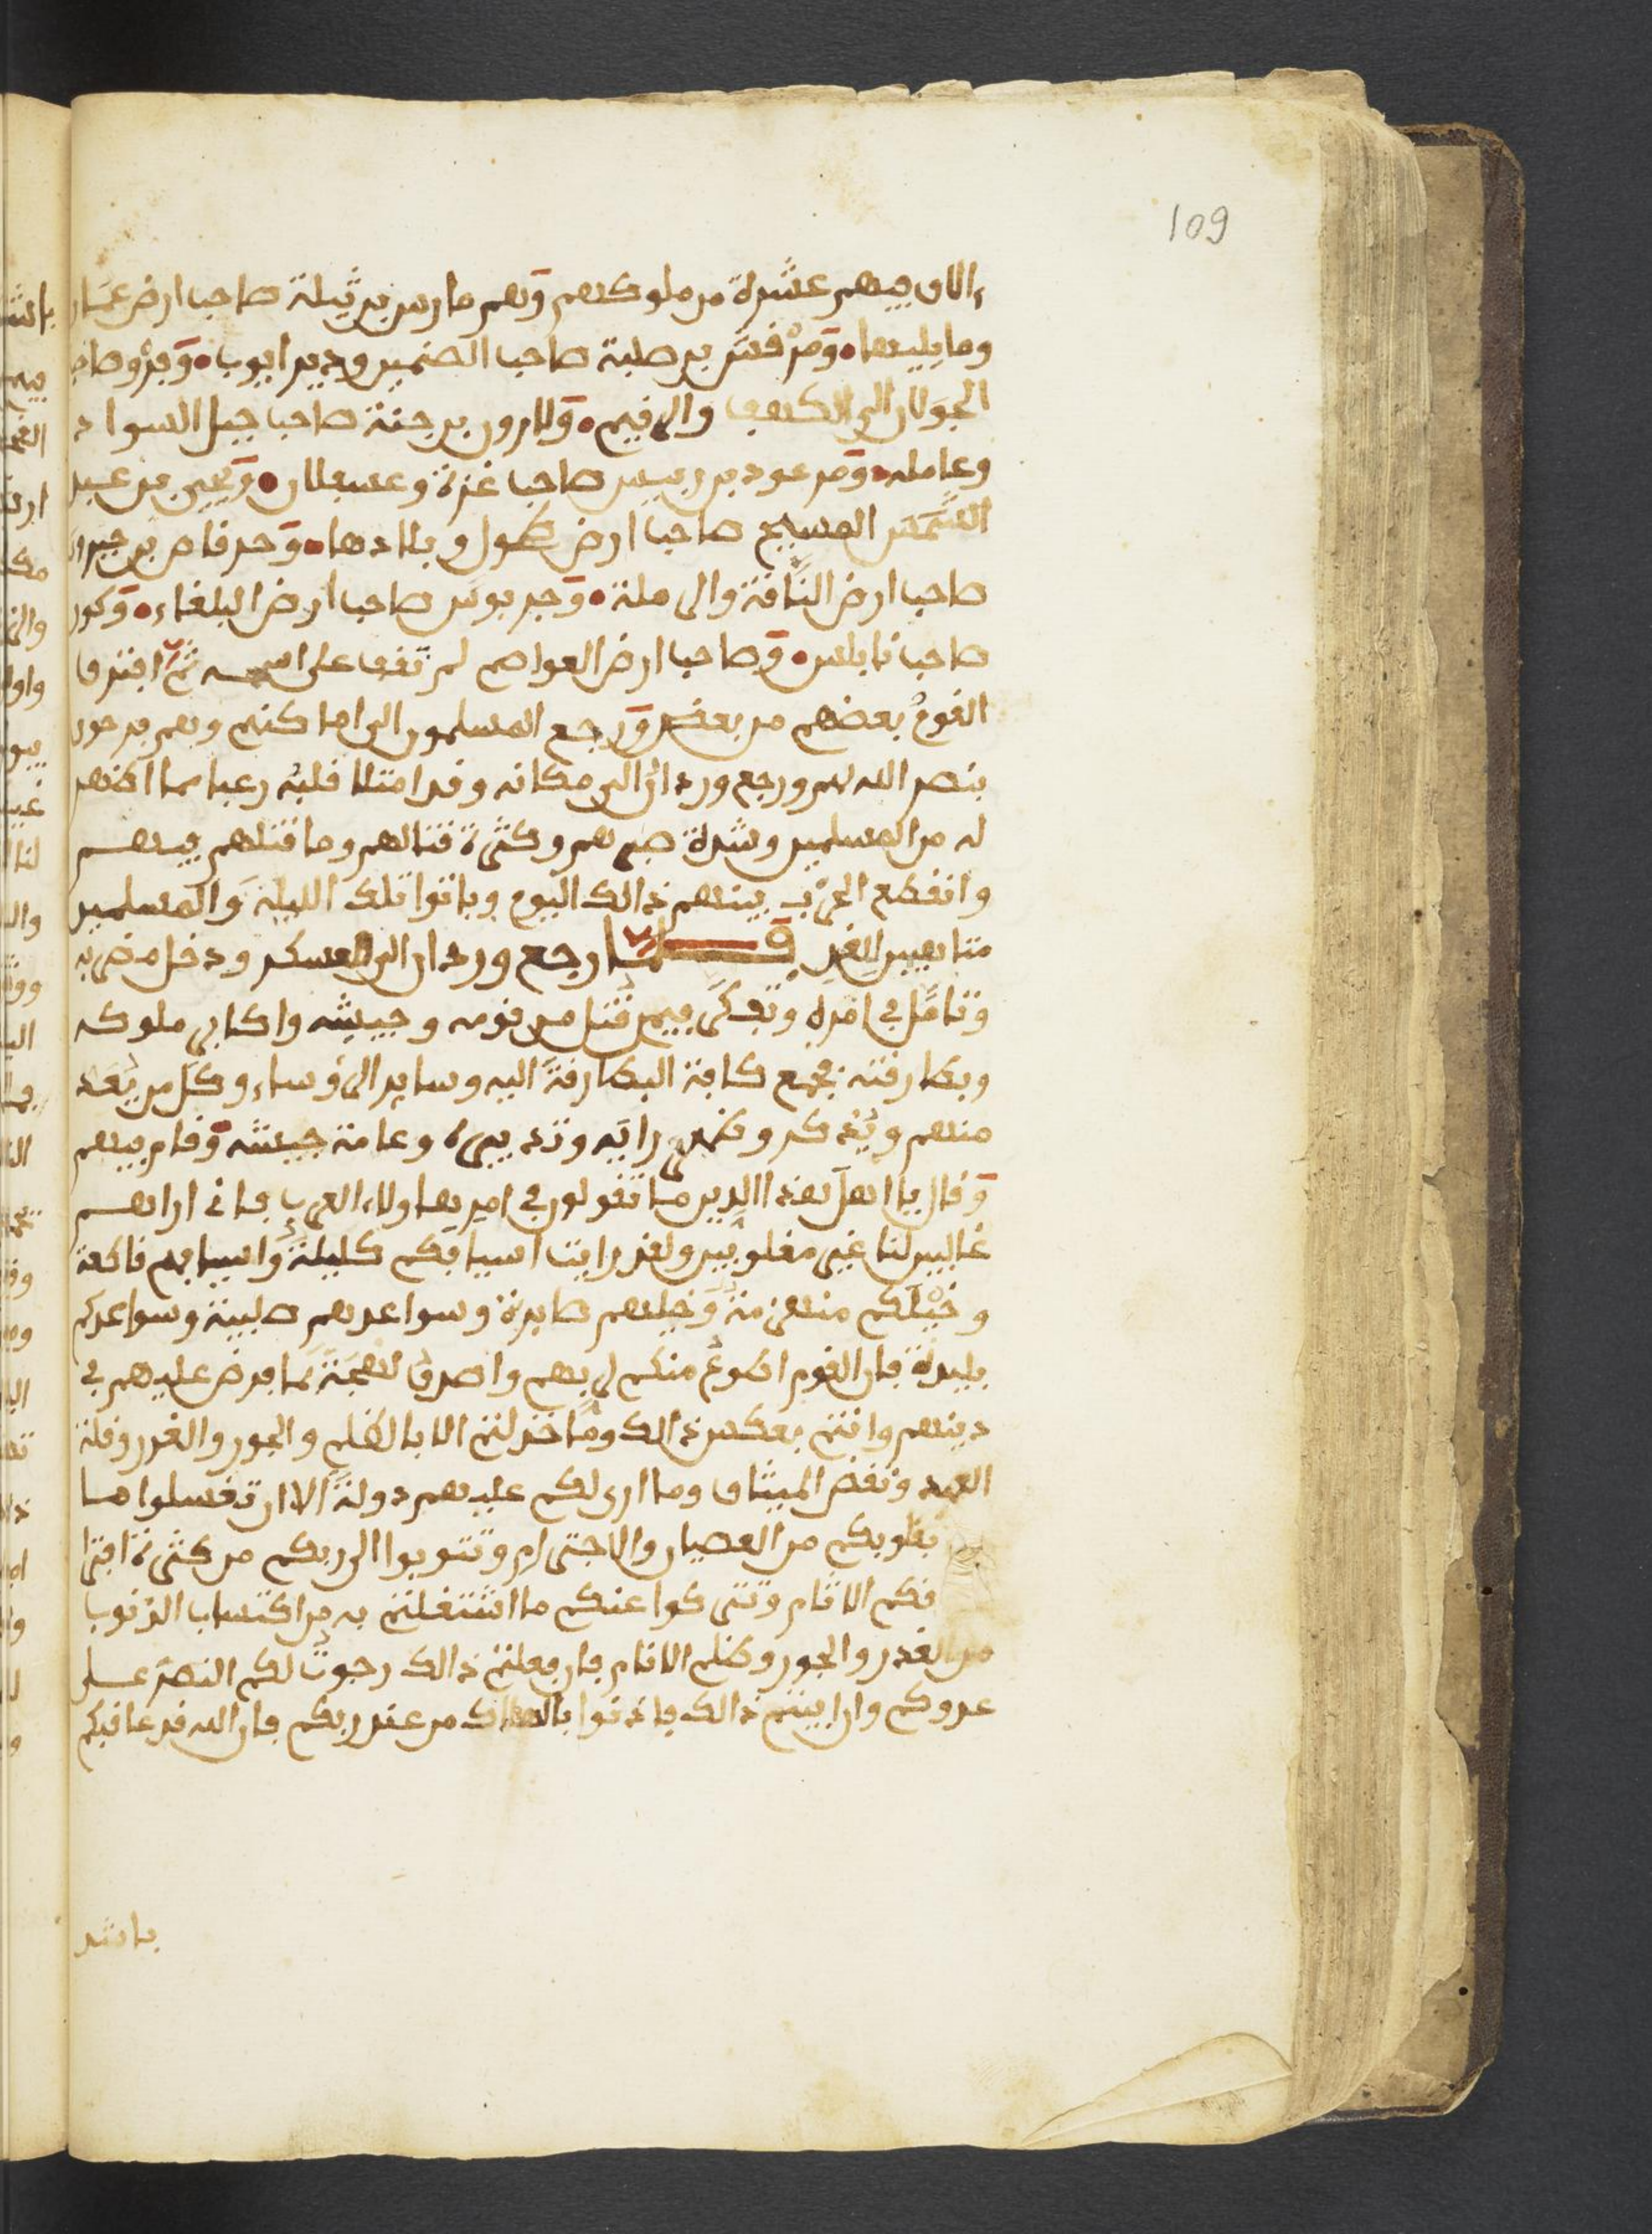 109
ءالاف فيهم عشرة من ملوكهم وهم مارس بن ثيلة صاحب ارض عمان
وما يليها ومرقش بن صلبة صاحب الصنمين ودير ايوب وفرو صاحب
الجولان الى الكهف والرقيم ولارون بن جنة صاحب جبل السواد
وعاملة ومرعود بن ربيس صاحب غزة وعسقلان ويحيى بن عبد
المسيح صاحب ارض وبلادها وحرقاص بن جبرون
صاحب ارض النافة والرملة وجربوس صاحب ارض البلقاء وكور
صاحب نابلس وصاحب ارض العواصم لم نقف على اسمه ثم افترق
القوم بعضهم من بعض ورجع المسلمون الى اماكنهم وهم فرحون
بنصر الله لهم ورجع وردان الى مكانه وقد امتلا قلبه رعبا مما اظهر
له من المسلمين وشدة صبرهم وكثرة قتالهم وما قتلهم فيهم
وانقطع الحرب بينهم ذالك اليوم وباتوا تلك الليلة والمسلمين
متاهبين للغد فلما رجع وردان الى العسكر ودخل مضربه
وتامل في امره وتفكر فيمن قتل من قومه وجيشه واكابر ملوكه
وبطارقته فجمع كافة البطارقة اليه وساير الرؤساء وكل من يعد
منهم ويذكر وظهر رايه وتدبيره وعامة جيشه وقام فيهم
وقال يا اهل هذا الدين ما تقولون في امر هاولاء العرب فاني اراهم
غالبين لنا غير مغلوبين ولقد رايت اسيافكم كليلة واسيافهم قاطعة
وخيلكم منهزمة وخيلهم صابرة وسواعدهم صلبية وسواعدكم
بليدة فان القوم اطوع منكم لربهم واصدق لهجة بما فرض عليهم في
دينهم وانتم بعكس ذالك وما خذلتم الا بالظلم والجور والغدر وقلة
العهد ونقض الميثاق وما ارى لكم عليهم دولة الا ان تغسلوا ما
بقلوبكم من العصيان والاجترام وتتوبوا الى ربكم من كثرة افترا
فكم الاثام وتتركوا عنكم ما اشتغلتم به من اكتساب الذنوب
من الغدر والجور وظلم الانام فان فعلتم ذالك رجوت لكم النصر على
عدوكم وان ابيتم ذالك فاذنوا بالهلاك من عند ربكم فان الله قد عاقبكم
باشد